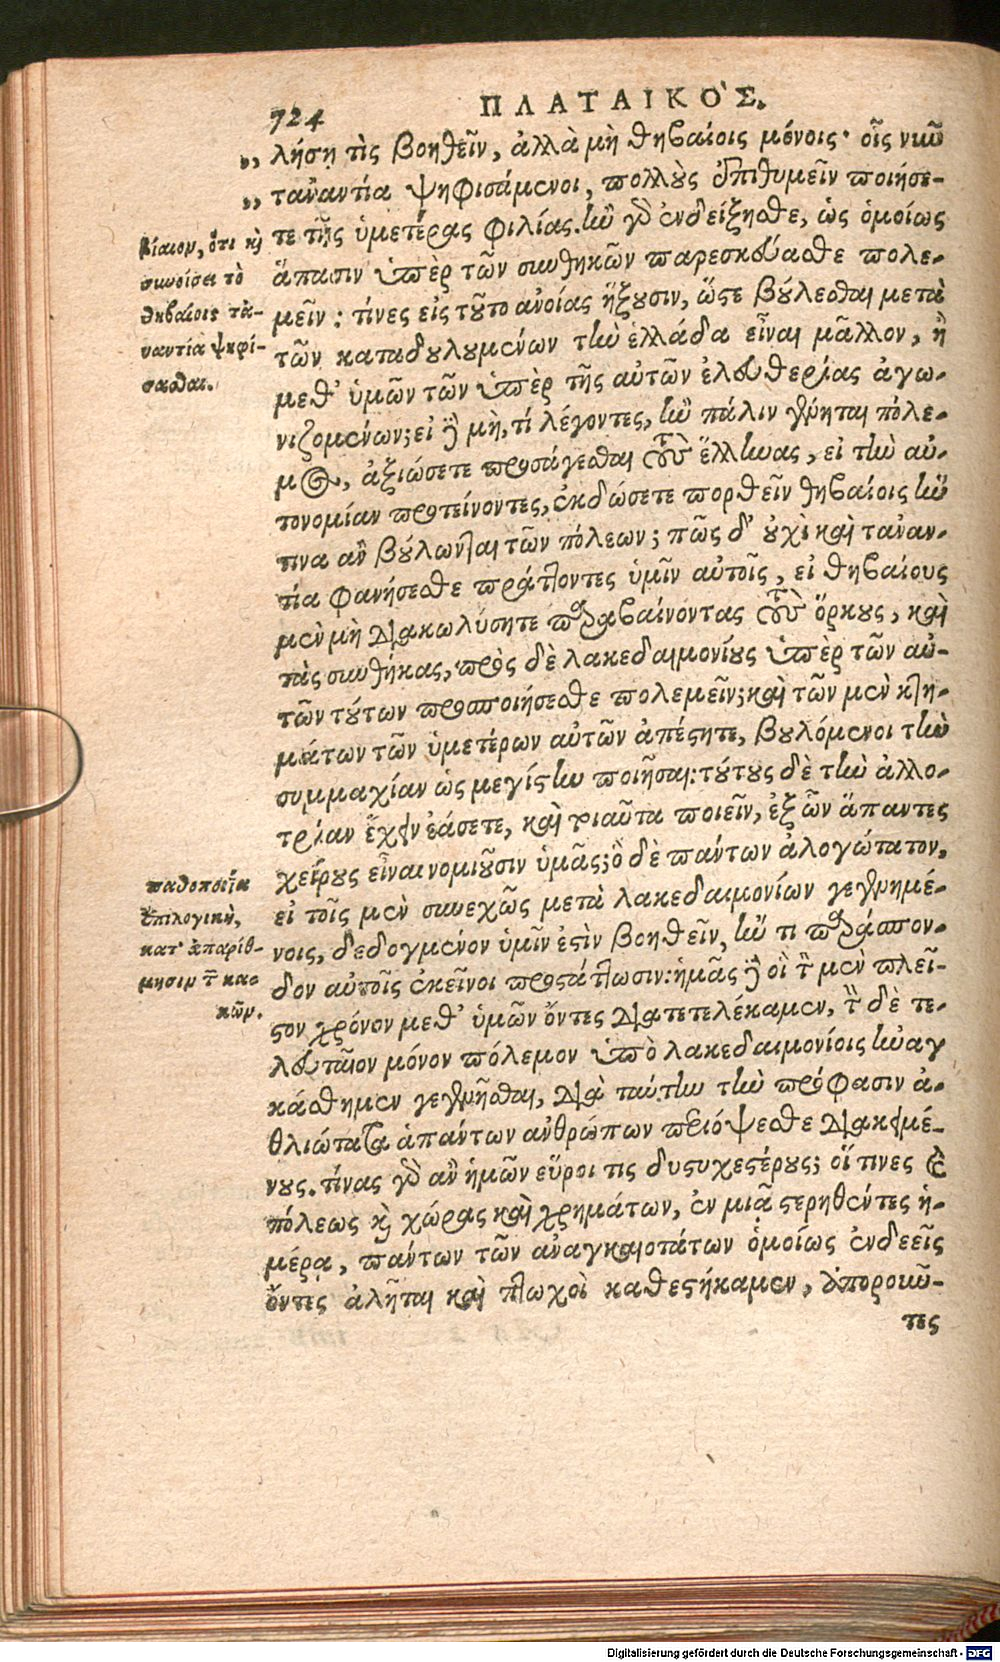 724
ΠΛΑΤΑΙΚΟ'Σ.
„ λήσῃ τὶς βοηθεῖν, ἀλλὰ μὴ θηβαίοις μόνοις· οἷς νιῶ
„ τἀναντία ψηφισάμενοι, πολλοὺς ἐπιθυμεῖν ποιήσε-
τε τῆς ὑμετέρας φιλίας. ἢν γὰρ ἐνδείξησθε, ὡς ὁμοίως
ἅπασιν ὑπὲρ τῶν συνθηκῶν παρεσκεύασθε πολε-
μεῖν: τίνες εἰς τοῦτο ἀνοίας ἥξουσιν, ὥστε βούλεσθαι μετὰ
τῶν καταδουλουμένων τὴν ἑλλάδα εἶναι μᾶλλον, ἢ
μεθ' ὑμῶν τῶν ὑπὲρ τῆς αὐτῶν ἐλευθερίας ἀγω-
νιζομένων; εἰ δὲ μὴ, τί λέγοντες, ἢν πάλιν γένηται πόλε-
μος, ἀξιώσετε προσάγεσθαι τοὺς ἕλληνας, εἰ τὴν αὐ-
τονομίαν προτείνοντες, ἐκδώσετε πορθεῖν θηβαίοις ἣν
τινα ἂν βούλωνται τῶν πόλεων; πῶς δ' οὐχὶ καὶ τἀναν-
τία φανήσεσθε πράττοντες ὑμῖν αὐτοῖς, εἰ θηβαίους
μὲν μὴ διακωλύσητε παραβαίνοντας τοὺς ὅρκους, καὶ
τὰς συνθήκας, πρὸς δὲ λακεδαιμονίους ὑπὲρ τῶν αὐ-
τῶν τούτων προσποιήσεσθε πολεμεῖν; καὶ τῶν μὲν κτη-
μάτων τῶν ὑμετέρων αὐτῶν ἀπέστητε, βουλόμενοι τὴν
συμμαχίαν ὡς μεγίστην ποιῆσαι: τούτους δὲ τὴν ἀλλο-
τρίαν ἔχειν ἐάσετε, καὶ τοιαῦτα ποιεῖν, ἐξ ὧν ἅπαντες
χείρους εἶναι νομιοῦσιν ὑμᾶς; ὃ δὲ πάντων ἀλογώτατον,
εἰ τοῖς μὲν συνεχῶς μετὰ λακεδαιμονίων γεγενημέ-
νοις, δεδογμένον ὑμῖν ἐστὶν βοηθεῖν, ἤν τι παράσπον-
δον αὐτοῖς ἐκεῖνοι προστάττωσιν: ἡμᾶς δὲ οἳ τὸν μὲν πλεῖ-
στον χρόνον μεθ' ὑμῶν ὄντες διατετελέκαμεν, τὸν δὲ τε-
λευταῖον μόνον πόλεμον ὑπὸ λακεδαιμονίοις ἠναγ
κάσθημεν γενέσθαι, διὰ ταύτην τὴν πρόφασιν ἀ-
θλιώτατα ἁπάντων ἀνθρώπων περιόψεσθε διακειμέ-
νους. τίνας γὰρ ἂν ἡμῶν εὕροι τις δυστυχεστέρους; οἵ τινες καὶ
πόλεως καὶ χώρας καὶ χρημάτων, ἐν μιᾷ στερηθέντες ἡ-
μέρᾳ, πάντων τῶν ἀναγκαιοτάτων ὁμοίως ἐνδεεῖς
ὄντες ἀλῆται καὶ πτωχοὶ καθεστήκαμεν, ἀποροῦν-
τες
βίαιον, ὅτι καὶ
συνοίσει τὸ
θηβαίοις τἀ-
ναντία ψηφί-
σασθαι.
παθοποιΐα
ἐπιλογικὴ,
κατ' ἀπαρίθ-
μησιν τῶν κα-
κῶν.
Digitalisierung gefördert durch die Deutsche Forschungsgemeinschaft - DFG